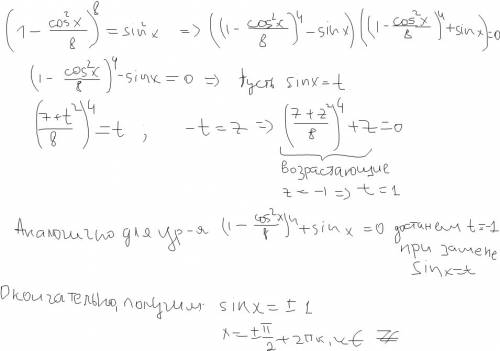 (1 - cos²x/8)⁸ = sin²x => ((1 - cos²x/8)⁴ - sinx)((1 - cos²x/8)⁴ + sinx) = 0
(1 - cos²x/8)⁴ - sinx = 0 => Пусть sinx = t
((7+t²)/8)⁴ = t ; -t = z => ((7+z²)/8)⁴ + z = 0
возрастающие
z = -1 => t = 1
Аналогично для ур-я (1 - cos²x/8)⁴ + sinx = 0 достанем t = -1
при замене
sinx = t
Окончательно, получим sinx = ± 1
x = ± π/2 + 2πk, k ∈ Z